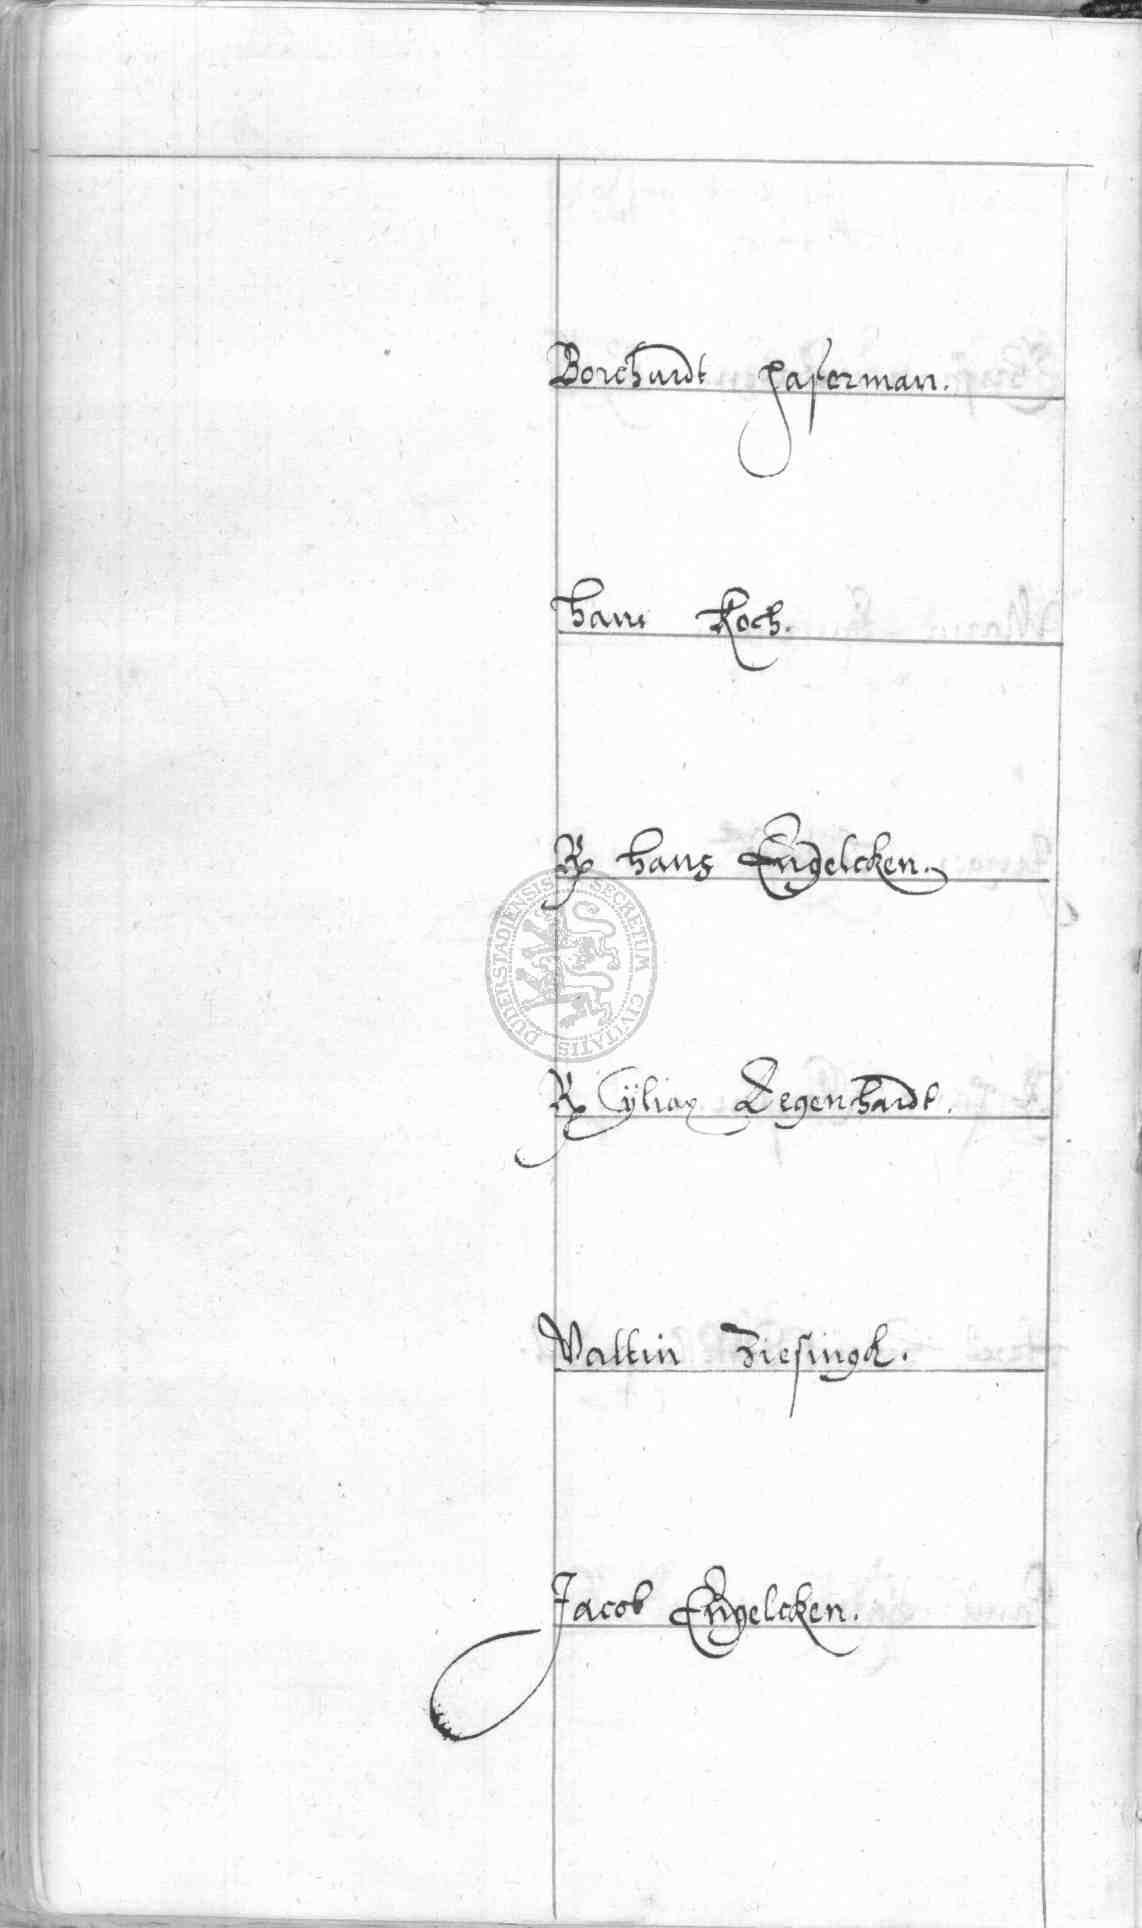 Borchardt Haferman.
Hans Koch.
R Hans Engelcken.
SECRETUM CIVITATIS DUDERSTADIENSIS
R Cÿliax Degenhardt.
Valtin Ziesingk.
Jacob Engelcken.